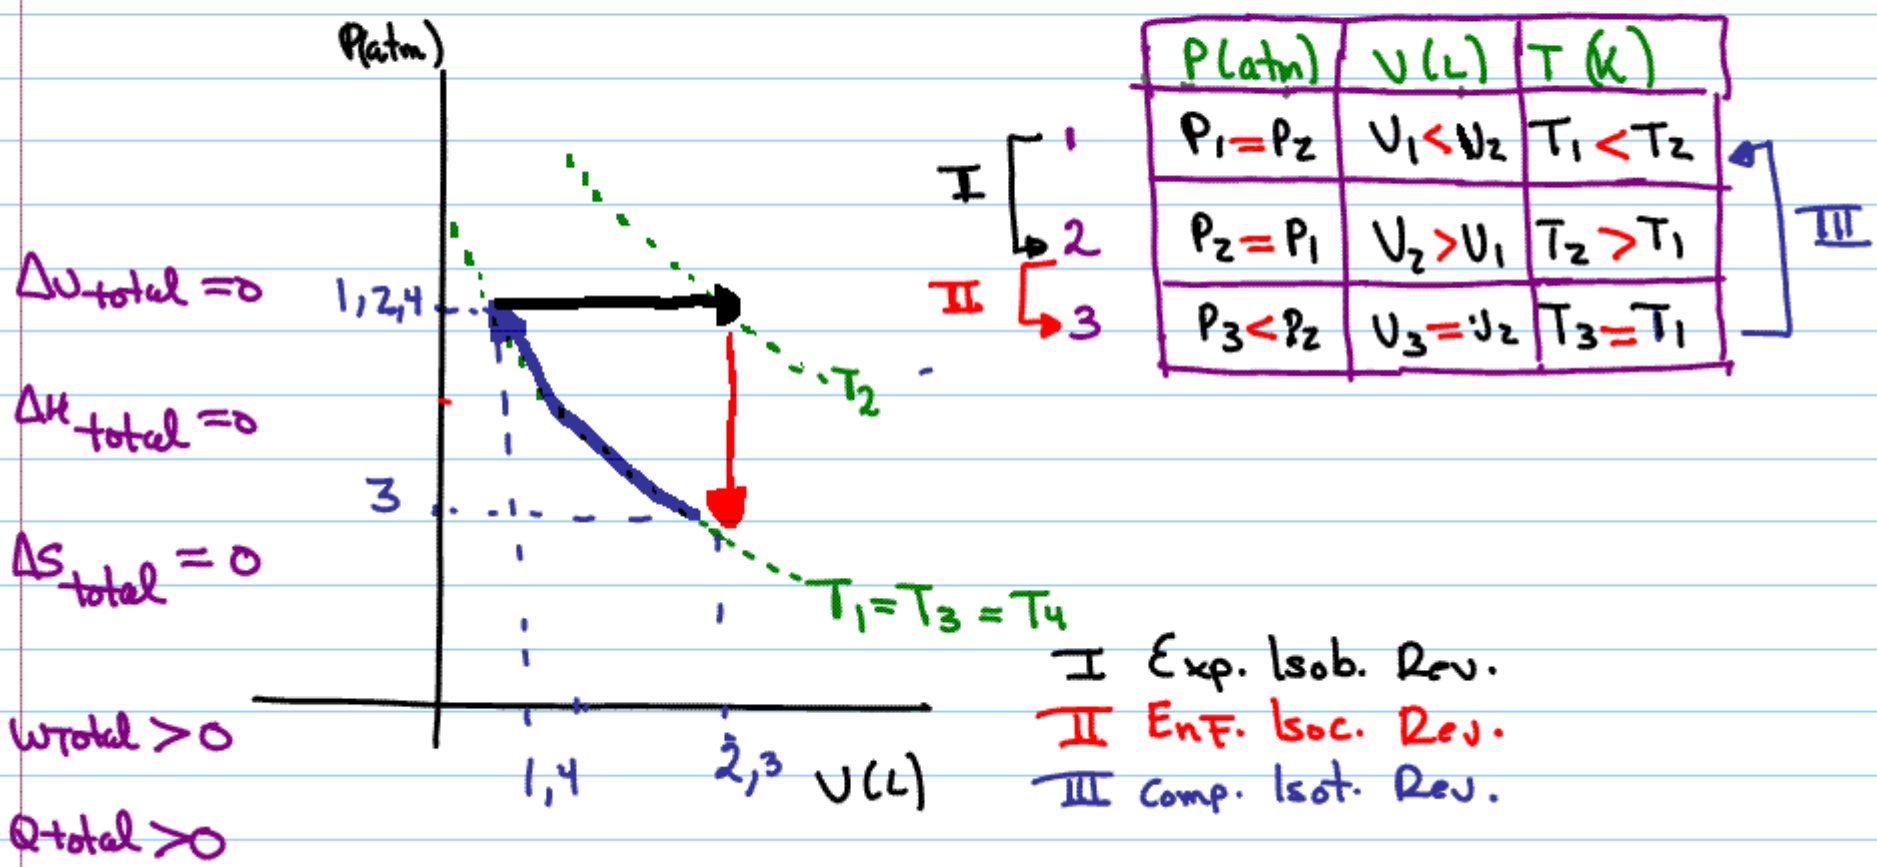 P(atm)
ΔU total = 0
ΔH total = 0
ΔS total = 0
WTotal > 0
Qtotal > 0
1,2,4
3
T2
T1 = T3 = T4
1,4
2,3
V(L)
P(atm) V(L) T(K)
I
1
P1 = P2 V1 < V2 T1 < T2
2
P2 = P1 V2 > V1 T2 > T1
III
II
3
P3 < P2 V3 = V2 T3 = T1
I Exp. Isob. Rev.
II Enf. Isoc. Rev.
III Comp. Isot. Rev.